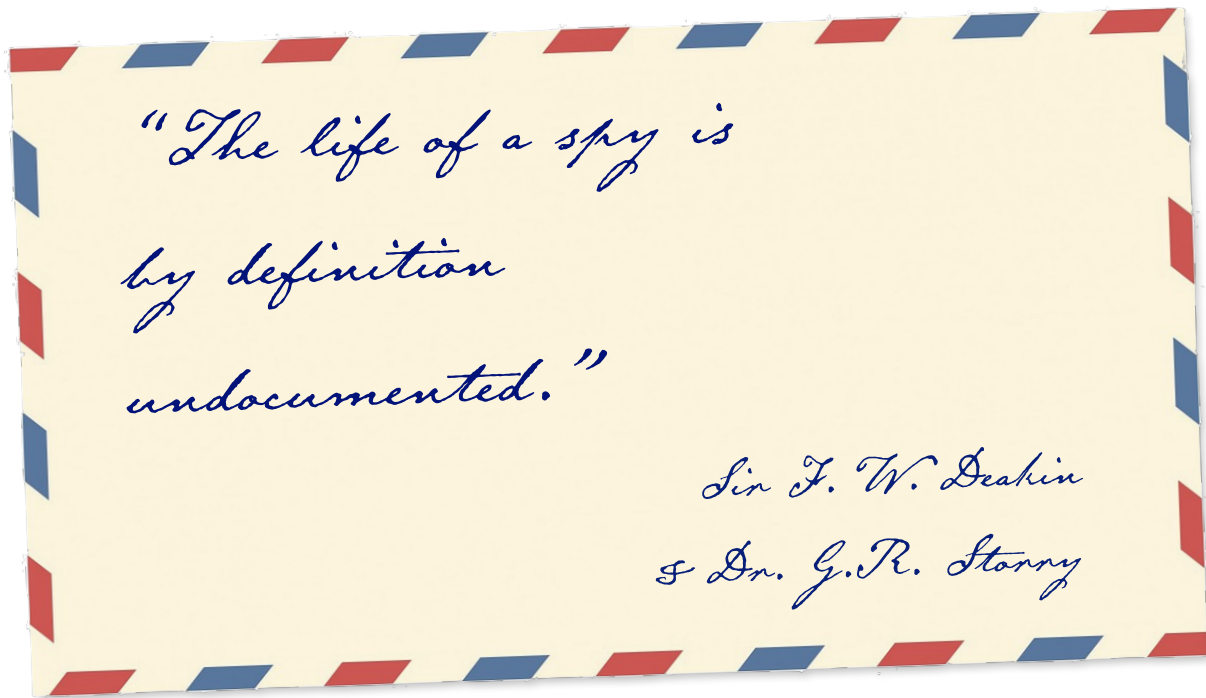 “The life of a spy is
by definition
undocumented.”
Sir F. W. Deakin
& Dr. G.R. Storry